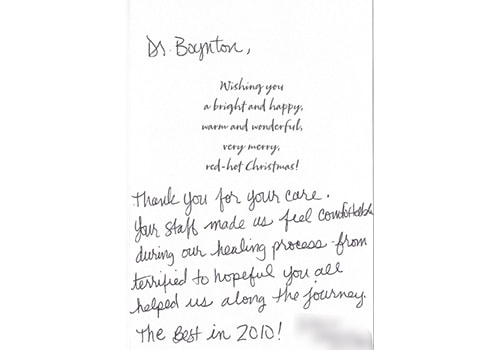 Dr. Boynton,
Wishing you
a bright and happy,
warm and wonderful,
very merry,
red-hot Christmas!
Thank you for your care.
Your staff made us feel comfortable
during our healing process - from
terrified to hopeful you all
helped us along the journey.
The Best in 2010!